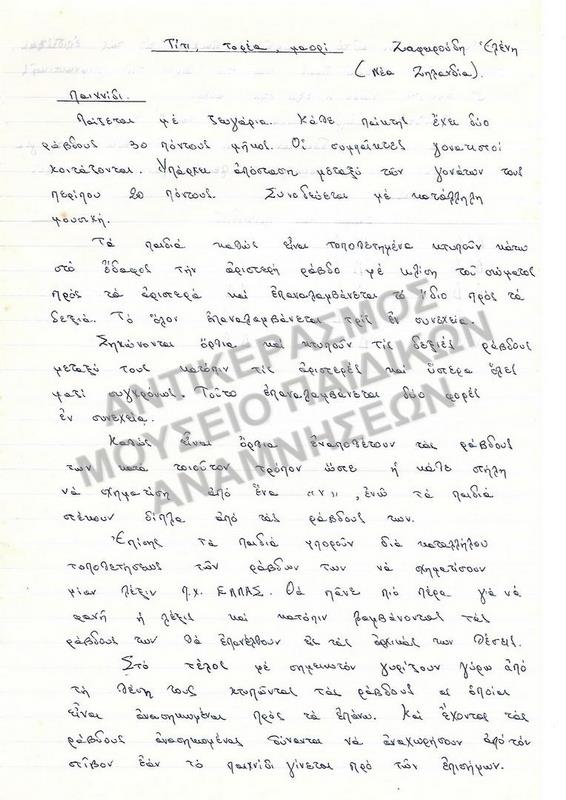 Τίτι, τορέα, μαορί Ζαφειρούδη Ἑλένη
(Νέα Ζηλανδία).
Παιχνίδι.
Παίζεται μέ ζευγάρια. Κάθε παίκτης ἔχει δύο
ράβδους 30 πόντους μῆκος. Οἱ συμπαίκτες γονατιστοί
κοιτάζονται. Ὑπάρχει ἀπόσταση μεταξύ τῶν γονάτων τους
περίπου 20 πόντους. Συνοδεύεται μέ κατάλληλη
μουσική.
Τά παιδιά καθώς εἶναι τοποθετημένα κτυποῦν κάτω
στό ἔδαφος τήν ἀριστερή ράβδο μέ κλίση τοῦ σώματος
πρός τά ἀριστερά καί ἐπαναλαμβάνεται τό ἴδιο πρός τά
δεξιά. Τό ὅλον ἐπαναλαμβάνεται τρίς ἐν συνεχεία.
Σηκώνονται ὄρθια καί κτυποῦν τίς δεξιές ράβδους
μεταξύ τους κατόπιν τίς ἀριστερές καί ὕστερα ὅλες
μαζί συγχρόνως. Τοῦτο ἐπαναλαμβάνεται δύο φορές
ἐν συνεχεία.
Καθώς εἶναι ὄρθια ἐναποθέτουν τάς ράβδους
των κατά τοιοῦτον τρόπον ὥστε ἡ κάθε στήλη
νά σχηματίση ἀπό ἕνα «ν», ἐνῶ τά παιδιά
στέκουν δίπλα ἀπό τάς ράβδους των.
Ἐπίσης τά παιδιά μποροῦν διά καταλλήλου
τοποθετήσεως τῶν ράβδων των νά σχηματίσουν
μίαν λέξιν π.χ. ΕΛΛΑΣ. Θά πᾶνε πιό πέρα γιά νά
φανῆ ἡ λέξις καί κατόπιν λαμβάνοντας τάς
ράβδους των θά ἐπανέλθουν εἰς τάς ἀρχικάς των θέσεις.
Στό τέλος μέ σημειωτόν γυρίζουν γύρω ἀπό
τή θέση τους κτυπῶντας τάς ράβδους αἱ ὁποῖαι
εἶναι ἀνασηκωμέναι πρός τά ἐπάνω. Καί ἔχοντας τάς
ράβδους ἀνασηκωμένας δύνανται νά ἀναχωρήσουν ἀπό τόν
στῖβον ἐάν τό παιχνίδι γίνεται πρό τῶν ἐπισήμων.
ΑΝΤΙΚΕΡΑΣΜΟΣ
ΜΟΥΣΕΙΟ ΠΑΙΔΙΚΩΝ
ΑΝΑΜΝΗΣΕΩΝ